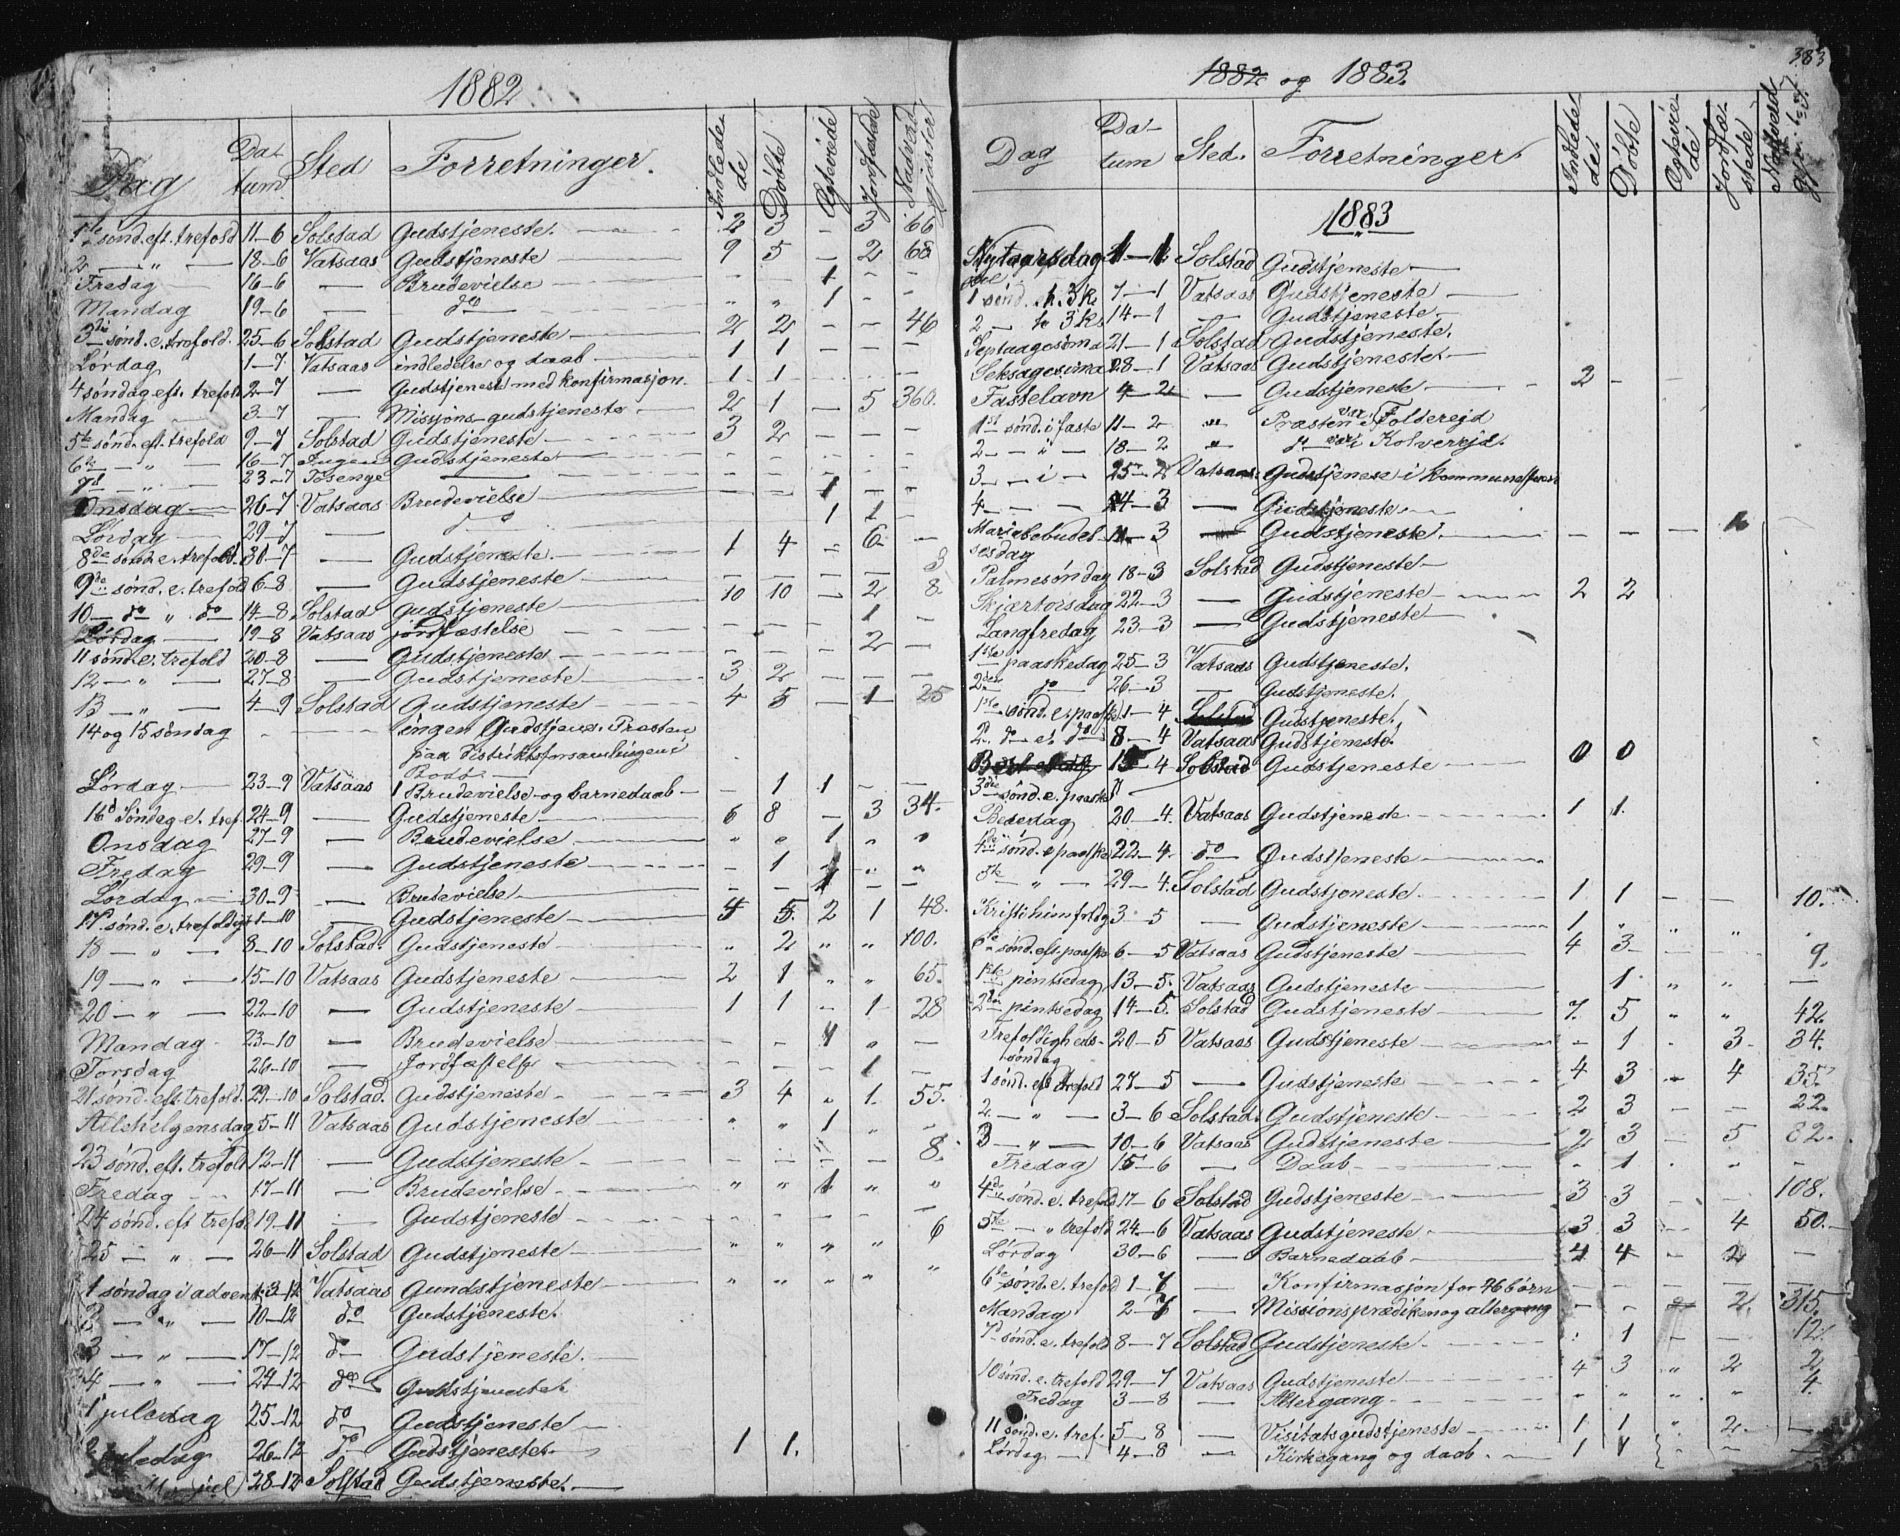 1882
Dag Datum Sted Forretninger. Indledede Døbte Egteviede Jordfæstede Nadverdgjester
1ste sønd. eft. trefold 11-6 Solstad Gudstjeneste. 2 3 - 3 66
2 — " — 18-6 Vatsaas Gudstjeneste 9 5 - 2 68
Fredag 16-6 — Brudevielse - - 1 - -
Mandag 19-6 — do " " 1 - -
3die sønd. e. trefold. 25-6 Solstad Gudstjeneste 2 2 - - 46
Lørdag 1-7 Vatsaas indledelse og daab 1 1 - - -
4 søndag eft. trefold 2-7 — Gudstjenest med konfirmasjon. 1 1 - - -
Mandag 3-7 — Missjons-gudstjeneste 2 1 - 5 360.
5te sønd. eft. trefold 9-7 Solstad Gudstjeneste 3 2 - - -
6te — " — 16-7 Ingen Gudstjeneste - - - - -
— " — 23-7 Fosenge — - - - - -
Onsdag 26-7 Vatsaas Brudevielse - - 1 - -
Lørdag 29-7 — do 1 1
8de sønd. e. trefold. 30-7 — Gudstjeneste 1 4 - 6 -
9de sønd. e. trefold 6-8 — Gudstjeneste - - - - 3
10 — do " do 14-8 Solstad Gudstjeneste 10 10 - 2 8
Lørdag 19-8 Vatsaas jordfæstelse - - - 1 -
11 sønd. e. trefold 20-8 — Gudstjeneste - - - 2 -
12 — " — 27-8 — Gudstjeneste 3 2 - - -
13 — " — 4-9 Solstad Gudstjeneste 4 5 - 1 25
14 og 15 søndag - ingen Gudstjenes. Præsten
paa distriktsforsamlingen i
Bodø
Lørdag 23-9 Vatsaas 1 Brudevielse og barnedaab - 1 1 - -
16d Søndag e. tref. 24-9 — Gudstjeneste 6 8 - 3 34.
Onsdag 27-9 — Brudevielse " " 1 " "
Fredag 29-9 — Gudstjeneste - 1 " "
Lørdag 30-9 — Brudevielse - - 1 - -
17 sønd. e. trefoldig 1-10 — Gudstjeneste 4 5 2 1 48.
18 — " — 8-10 Solstad. Gudstjeneste " 2 " " 100.
19 — " — 15-10 Vatsaas Gudstjeneste 2 1 " " 65.
20 — " — 22-10 — Gudstjeneste 1 1 " 1 28
Mandag 23-10 — Brudevielse - - 1 " -
Torsdag 26-10 — Jordfæstelse - - - 1 -
21 sønd. eft. trefold. 29-10 Solstad. Gudstjeneste 3 4 " 1. 55.
Allehelgensdag 5-11 Vatsaas Gudstjeneste " " 1 " "
23 sønd. eft. trefold 12-11 — Gudstjeneste - - - - 8.
Fredag 17-11 — Brudevielse " " 1 " "
24 sønd. eft trefol 19-11 — Gudstjeneste - - - - -
25 — " — 26-11 Solstad Gudstjeneste " " " " 6
1 søndag i advent 3-12 Vatsaas Gundstjeneste " " " " "
2 — " — 10-12 do Gudstjeneste.
3 — " — 17-12 do Gudstjeneste.
4 — " — 24-12 do Gudstjeneste.
1 juledag 25-12 do Gudstjeneste
2 juledag 26-12 do Gudstjeneste 1 1.
jul 28-12 Solstad Gudstjeneste.
383
1882 og 1883.
Dag Datum Sted. Forretninger. Indledede. Døbte Egteviede Jordfæstede Nadverdgjester
1883
Nytaarsdag 1-1 Solstad Gudstjeneste
1 sønd. h. 3 k. 7-1 Vatsaas Gudstjeneste
2 — h 3 k. 14-1 — Gudstjeneste
Septuagesima 21-1 Solstad Gudstjeneste.
Seksagesima 28-1 Vatsaas Gudstjeneste.
Fastelavn 4-2 — Gudstjeneste 2 - -
1st sønd. i faste 11-2 " Præsten var i Folderejd
2 — i — 18-2 " do var i Kolverejd.
3 — i — 25-2 Vatsaas. Gudstjenese i kommunelokal
4 — - — 4-3 — Gudstjeneste
Mariæbebudelsesdag 11-3 — Gudstjeneste. - - -
Palmesøndag 18-3 Solstad Gudstjeneste
Skjærtorsdag 22-3 — Gudstjeneste 2 2
Langfredag 23-3 — Gudstjeneste
1ste paaskedag 25-3 Vatsaas Gudstjeneste.
2den do 26-3 — Gudstjeneste.
1ste sønd. e. paaske 1-4 Solstad Gudstjeneste.
2. d. e. do 8-4 Vatsaas Gudstjeneste.
15-4 Solstad Gudstjeneste 0 0
3die sønd. e. paaske
Bededag 20-4. Vatsaas Gudstjeneste. 1 1.
4de sønd. e paaske 22-4. do Gudstjeneste
5te " — 29-4. Solstad Gudstjeneste 1 1 - - 10.
Kristi himfeldg 3-5 — Gudstjeneste 1 " " "
6te sønd. eft. paaske 6-5 Vatsaas Gudstjeneste 4 3 - - 9.
1ste pintsedag 13-5. Vatsaas Gudstjeneste 1 " " —
2den pintsedag 14-5. Solstad Gudstjeneste 7. 5 " " 42.
Trefoldighedssøndag 20-5 Vatsaas Gudstjeneste - 1 - 3. 34.
1 sønd. eft trefold 27-5 — Gudstjeneste 4 3 - 4 35.
2 — " — 3-6 Solstad. Gudstjeneste 2 3 - - 22.
3 — " — 10-6 Vatsaas Gudstjeneste 2 3 - 5 82.
Fredag 15-6 — Daab " 1 " " -
4de sønd. e. trefold 17-6 Solstad Gudstjeneste 3 3 - - 108.
5te " trefold 24-6 Vatsaas Gudstjeneste 3 3 - 4 50.
Lørdag 30-6 — Barnedaab 4 4 - 2 —
6te sønd. e. trefold 1-7 — Konfirmasjon for 46 børn - - - - -
Mandag 2-7 — Missionsprædiken og altergang - - - 2. 315.
7. sønd. e. trefold 8-7 Solstad Gudstjeneste. : 1 - - 12.
10 sønd. e. trefold 29-7 Vatsaas Gudstjeneste 4 3 " 2 2
Fredag 3-8 — Altergang " " " " 4.
11 sønd. e. tref. 5-8 — Visitatsgudstjeneste 1 1 " 2. —
Lørdag 4-8 — Kirkegang og daab. 1 1 - - —